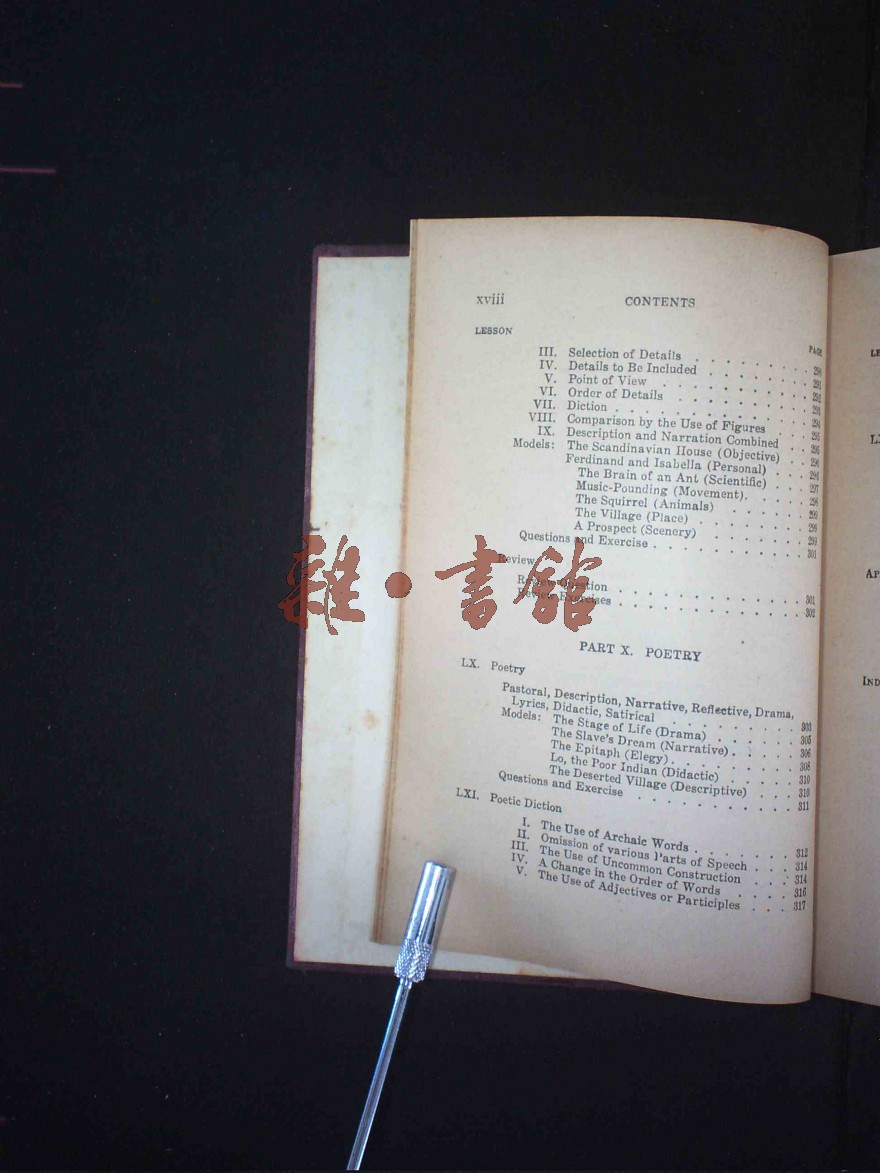 xviii CONTENTS
LESSON PAGE
III. Selection of Details . . . . . . . . 290
IV. Details to Be Included . . . . . . . 291
V. Point of View . . . . . . . . . 292
VI. Order of Details . . . . . . . . 293
VII. Diction . . . . . . . . . . . 294
VIII. Comparison by the Use of Figures . . . 295
IX. Description and Narration Combined . . 296
Models: The Scandinavian House (Objective) . . 296
Ferdinand and Isabella (Personal) . . . 296
The Brain of an Ant (Scientific) . . . 297
Music-Pounding (Movement) . . . . . 298
The Squirrel (Animals) . . . . . . 299
The Village (Place) . . . . . . . 299
A Prospect (Scenery) . . . . . . . 299
Questions and Exercise . . . . . . . . . 301
Review
Review Question . . . . . . . . . . . 301
Review Exercises . . . . . . . . . . . 302
雜·書館
PART X. POETRY
LX. Poetry
Pastoral, Description, Narrative, Reflective, Drama,
Lyrics, Didactic, Satirical . . . . . . . 303
Models: The Stage of Life (Drama) . . . . . 305
The Slave's Dream (Narrative) . . . . 306
The Epitaph (Elegy) . . . . . . . 308
Lo, the Poor Indian (Didactic) . . . . 310
The Deserted Village (Descriptive) . . . 310
Questions and Exercise . . . . . . . . . 311
LXI. Poetic Diction
I. The Use of Archaic Words . . . . . . 312
II. Omission of various Parts of Speech . . . 314
III. The Use of Uncommon Construction . . . 314
IV. A Change in the Order of Words . . . . 316
V. The Use of Adjectives or Participles . . . 317